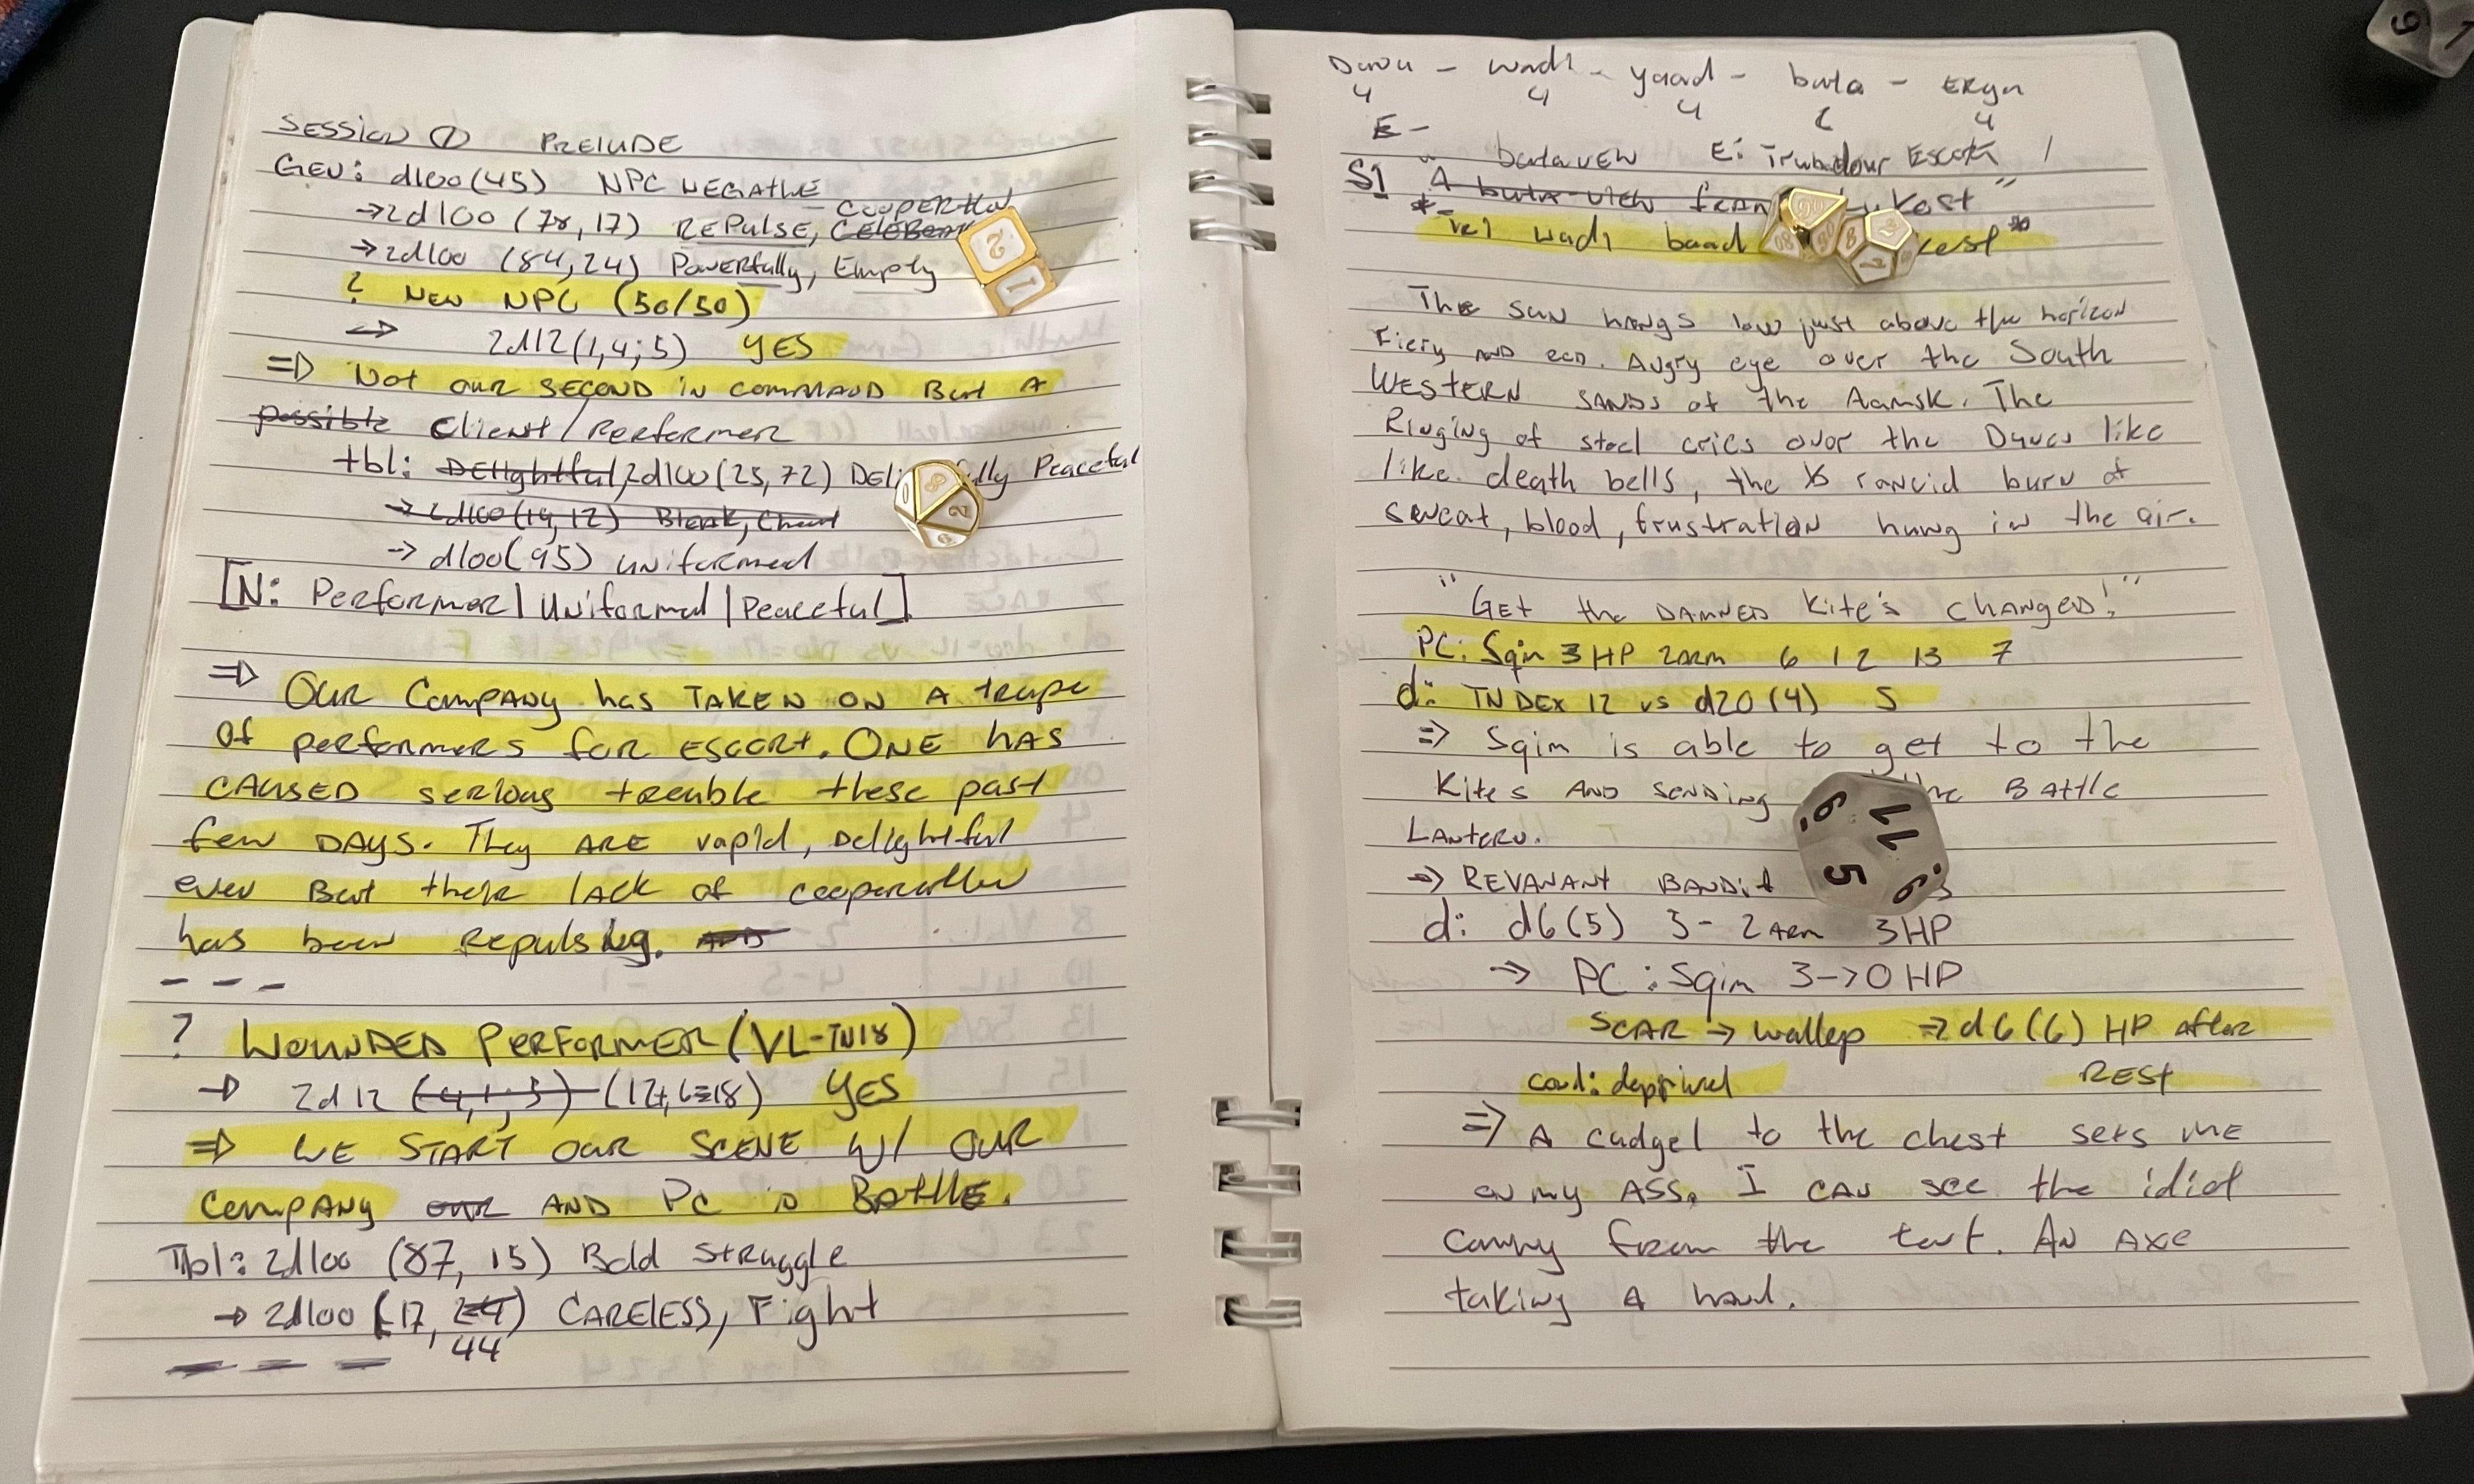 SESSION ① PRELUDE
GEN: d100 (45) NPC NEGATIVE
COOPERATION
→ 2d100 (78, 17) REPULSE, CELEBRATE
→ 2d100 (84, 24) POWERFULLY, EMPTY
? NEW NPC (50/50)
⇒ 2d12 (1,4; 5) YES
⇒ NOT OUR SECOND IN COMMAND BUT A
possible Client/Performer
tbl: DElightful, 2d100 (25, 72) DEL lly Peaceful
→ 2d100 (19, 12) Bleak,
→ d100 (95) uniformed
[N: Performer | Uniformed | Peaceful]
⇒ OUR COMPANY has TAKEN ON A troupe
of performers for ESCORT. ONE HAS
CAUSED serious trouble these past
few DAYS. They ARE vapid, Delightful
even But their lack of cooperation
has been Repulsing. AND
---
? WOUNDED PERFORMER (VL-TN18)
→ 2d12 (4,1,5) (12+6=18) YES
⇒ WE START OUR SCENE W/ OUR
Company our AND PC in Battle.
Tbl: 2d100 (87, 15) Bold Struggle
→ 2d100 (17, 24) CARELESS, Fight
44
---
Duna - wadi - yaad - buta - ERgn
4 4 4 6 4
E -
butaven E: Trubadour Escort 1
S1 "A buta-vien from Kest"
*-vel wadi baad kest*
The sun hangs low just above the horizon
Fiery AND RED. Angry eye over the South
WESTERN SANDS of the Aamsk. The
Ringing of steel cries over the Dunes like
like death bells, the rancid burn of
sweat, blood, frustration hung in the air.
"GET the DAMNED Kite's Changed!"
PC: Sqim 3 HP 2ARM 6 12 13 7
d: TN DEX 12 vs d20 (4) S
⇒ Sqim is able to get to the
Kites AND sending the Battle
LANTERN.
⇒ REVANANT BANDIT
d: d6 (5) 5 - 2 ARM 3HP
→ PC: Sqim 3→0 HP
SCAR → wallop ⇒ d6 (6) HP after
cond: deprived REST
⇒ A cudgel to the chest sets me
on my ASS. I CAN see the idiot
coming from the tent. AN AXE
taking A hand.